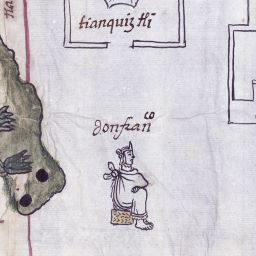 tianquiztli
don fran^co